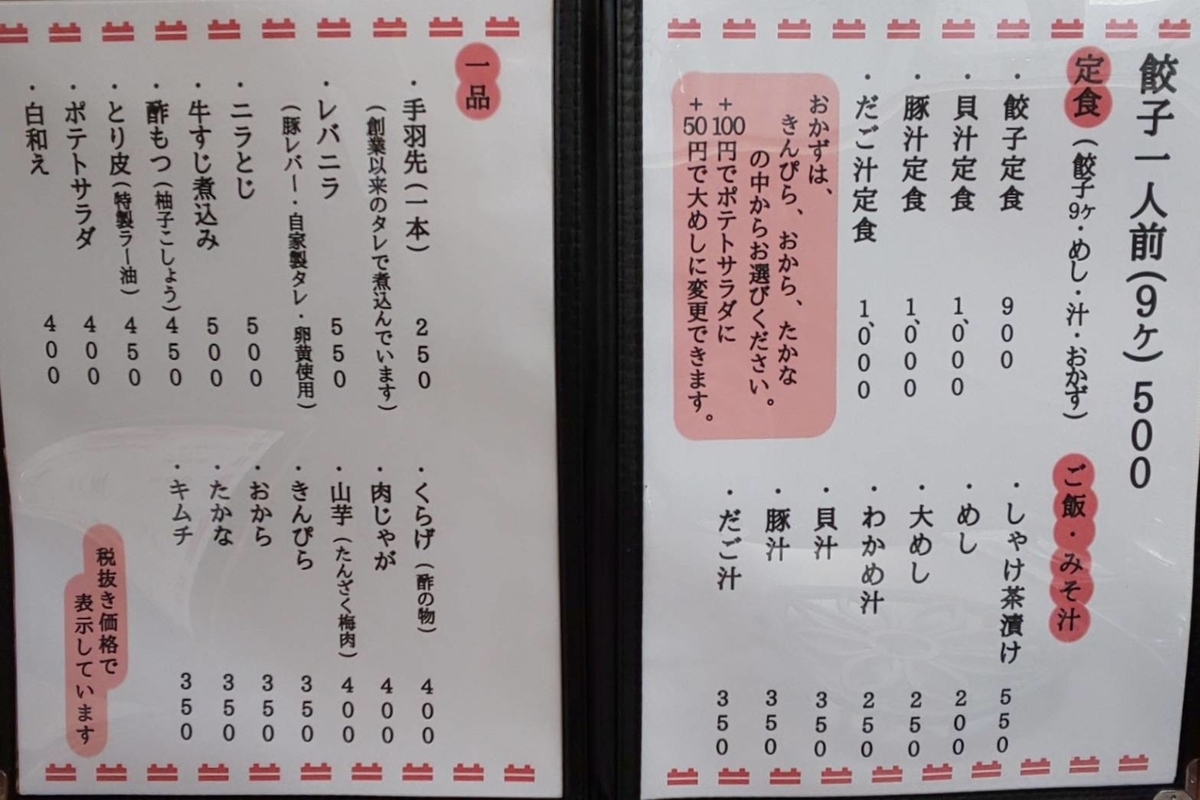 餃子一人前(9ヶ) 500
定食(餃子9ヶ・めし・汁・おかず)
・餃子定食 900
・貝汁定食 1,000
・豚汁定食 1,000
・だご汁定食 1,000
おかずは、
きんぴら、おから、たかな
の中からお選びください。
+100円でポテトサラダに
+50円で大めしに変更できます。
ご飯・みそ汁
・しゃけ茶漬け 550
・めし 200
・大めし 250
・わかめ汁 250
・貝汁 350
・豚汁 350
・だご汁 350
一品
・手羽先(一本) 250
(創業以来のタレで煮込んでいます)
・レバニラ 550
(豚レバー・自家製タレ・卵黄使用)
・ニラとじ 500
・牛すじ煮込み 500
・酢もつ(柚子こしょう) 450
・とり皮(特製ラー油) 450
・ポテトサラダ 400
・白和え 400
・くらげ(酢の物) 400
・肉じゃが 400
・山芋(たんざく梅肉) 400
・きんぴら 350
・おから 350
・たかな 350
・キムチ 350
税抜き価格で
表示しています